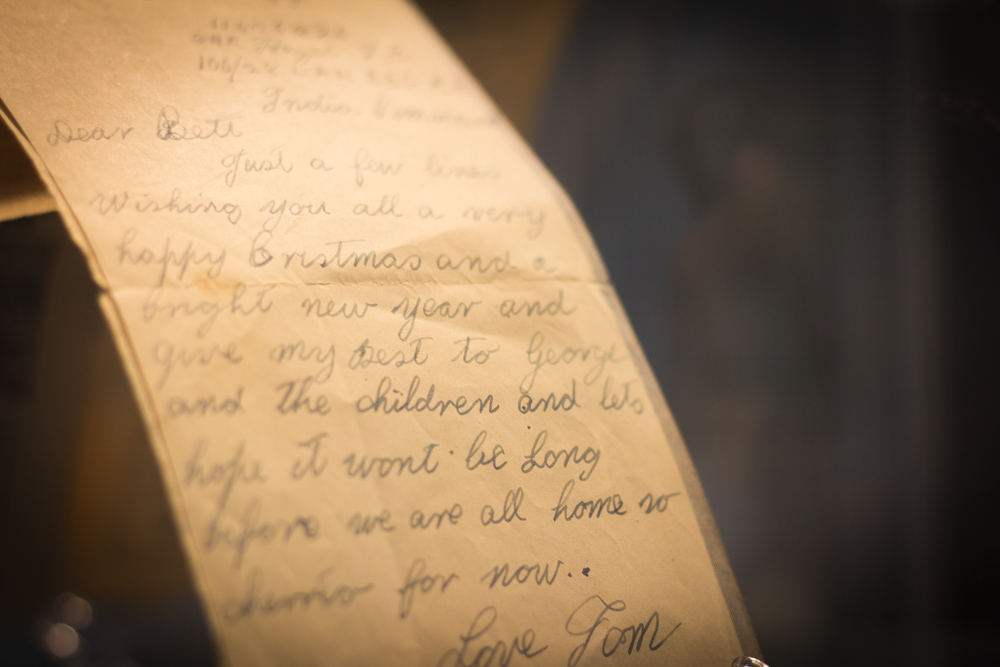 India
Dear Bett
Just a few lines
Wishing you all a very
happy Cristmas and a
bright new year and
give my best to George
and the children and lets
hope it wont be long
before we are all home so
cheerio for now..
Love Tom